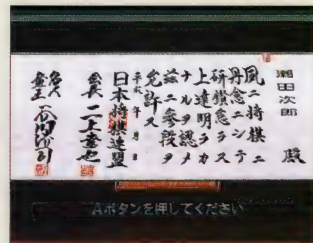 瀬田次郎 殿
夙ニ将棋ニ
丹念ニシテ
研鑽怠ラス
上達明ラカ
ナルヲ認メ
茲ニ参段ヲ
免許ス
平成 年 月 日
日本将棋連盟
会長 二上達也
名人
竜王 谷川浩司
Aボタンを押してください